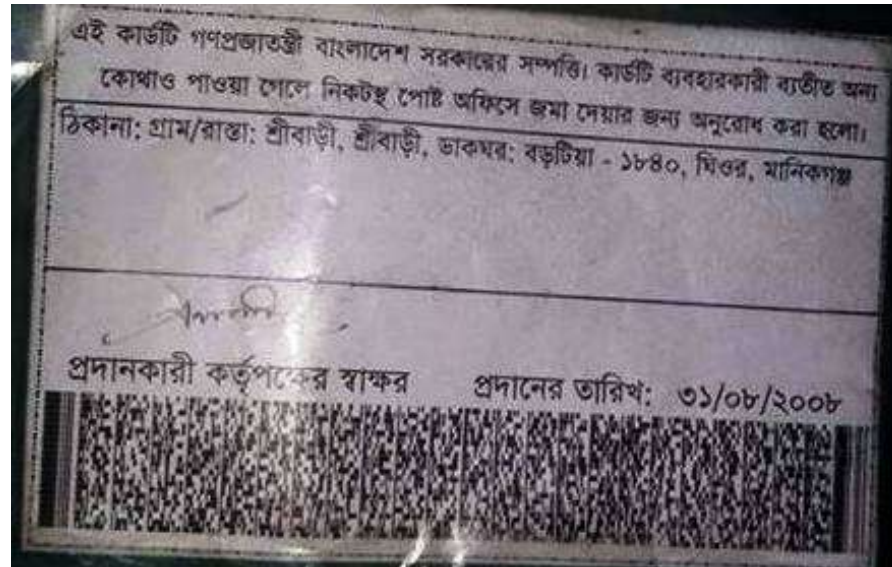 এই কার্ডটি গণপ্রজাতন্ত্রী বাংলাদেশ সরকারের সম্পত্তি। কার্ডটি ব্যবহারকারী ব্যতীত অন্য
কোথাও পাওয়া গেলে নিকটস্থ পোষ্ট অফিসে জমা দেয়ার জন্য অনুরোধ করা হলো।
ঠিকানা: গ্রাম/রাস্তা: শ্রীবাড়ী, শ্রীবাড়ী, ডাকঘর: বড়টিয়া - ১৮৪০, ঘিওর, মানিকগঞ্জ
প্রদানকারী কর্তৃপক্ষের স্বাক্ষর প্রদানের তারিখ: ৩১/০৮/২০০৮